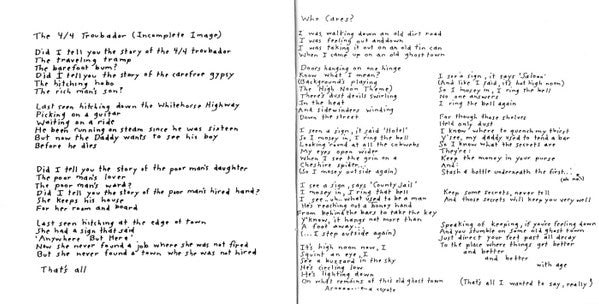 The 4/4 Troubador (Incomplete Image)
Did I tell you the story of the 4/4 troubador
The traveling tramp
The barefoot bum?
Did I tell you the story of the carefree gypsy
The hitching hobo
The rich man's son?
Last seen hitching down the Whitehorse Highway
Picking on a guitar
Waiting on a ride
He been running on steam since he was sixteen
But now the Daddy wants to see his boy
Before he dies
Did I tell you the story of the poor man's daughter
The poor man's lover
The poor man's ward?
Did I tell you the story of the poor man's hired hand?
She keeps his house
For her room and board
Last seen hitching at the edge of town
She had a sign that said
'Anywhere But Here'
Now she never found a job where she was not fired
But she never found a town who she was not hired
That's all
Who Cares?
I was walking down an old dirt road
I was feeling out and down
I was taking it out on an old tin can
When I came up on an old ghost town
Doors hanging on one hinge
Know what I mean?
(Background's playing
The High Noon Theme)
There's dust devils swirling
In the heat
And sidewinders winding
Down the street
I seen a sign, it said 'Hotel'
So I mosey in, I ring the bell
Looking 'round at all the cobwebs
My eyes open wider
When I see the grin on a
Cheshire spider...
(So I mosey out side again)
I see a sign, says 'County Jail'
I mosey in, I ring that bell
I see...uh..what used to be a man
He's reaching out a boney hand
From behind the bars to take the key
Y'know, it hangs not more than
A foot away...
(...I step outside again)
It's high noon now, I
Squint an eye, I
See a buzzard in the sky
He's circling low
He's lighting down
On what's remains of this old ghost town
a coyote
I see a sign, it says 'Saloon'
(And like I said, it's hot high noon)
So I mosey in, I ring the bell
No one answers
I ring the bell again
For though those shelves
Held only dust
I know where to quench my thirst
Y'see, my daddy used to tend a bar
So I know what the secrets are
They're:
Keep the money in your purse
And:
Stash a bottle underneath the first..
(uh huh)
Keep some secrets, never tell
And those secrets will keep you very well
Speaking of keeping, if you're feeling down
And you stumble on some old ghost town
Just direct your feet past all decay
To the place where things get better
and better
and better
with age
(That's all I wanted to say, really)